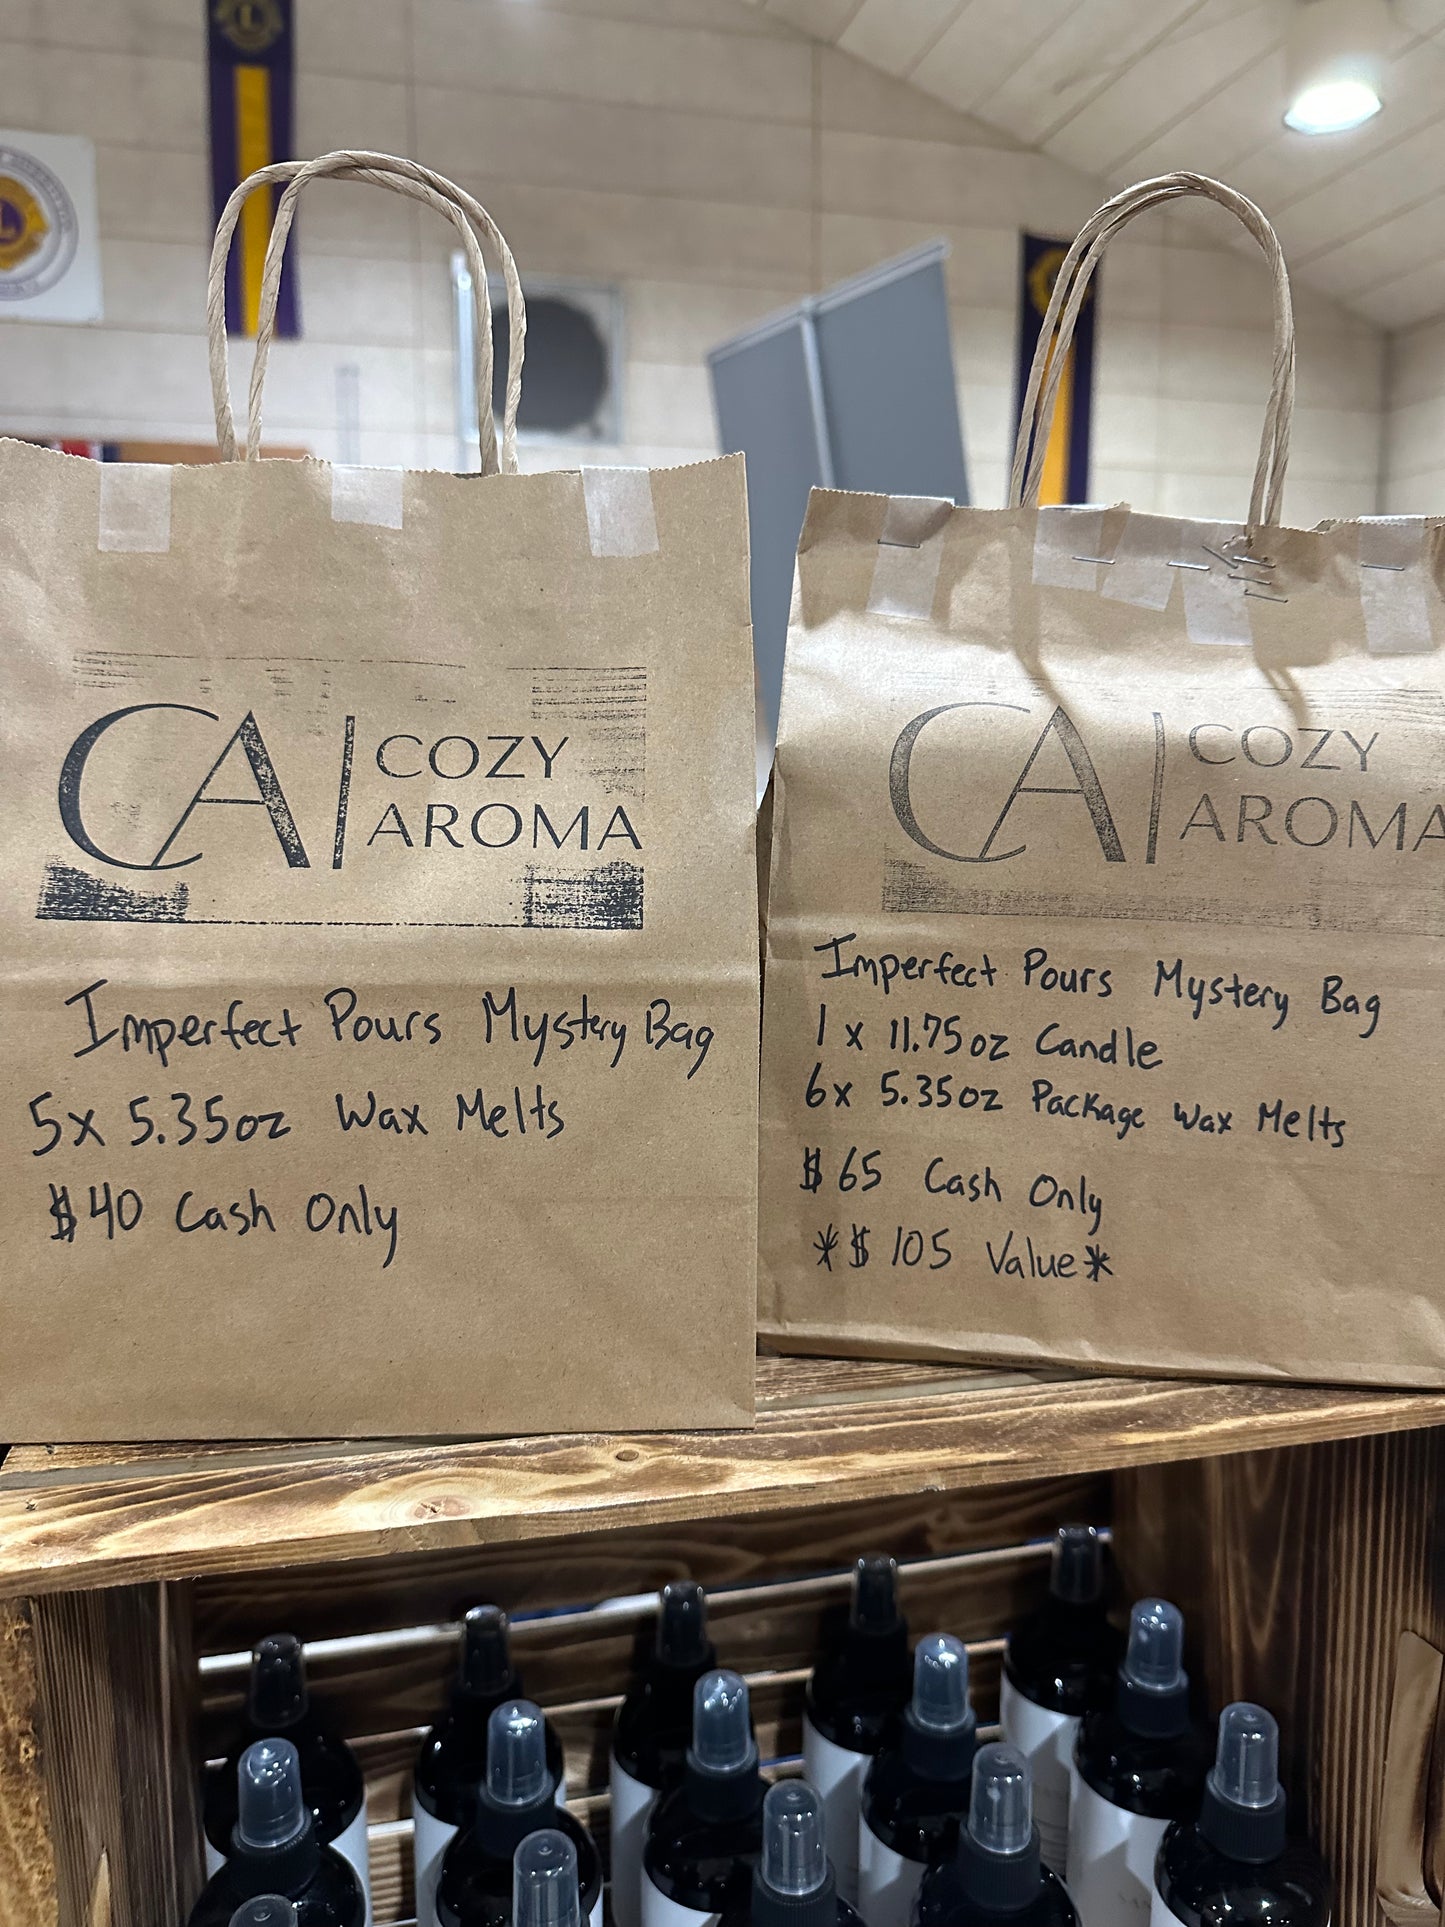 CA | COZY
AROMA
Imperfect Pours Mystery Bag
5x 5.35oz Wax Melts
$40 Cash Only
CA | COZY
AROMA
Imperfect Pours Mystery Bag
1 x 11.75oz Candle
6x 5.35oz Package Wax Melts
$65 Cash Only
*$105 Value*